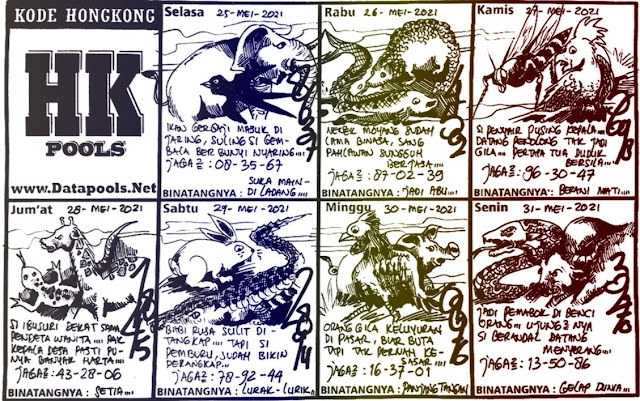 KODE HONGKONG
HK
POOLS
www.Datapools.Net
Selasa 25-MEI-2021
IKAN GERGAJI MABUK DI
JARING, SULING SI GEM-
BALA BER BUNYI NYARING....
JAGA²: 08-35-67
SUKA MAIN-
BINATANGNYA: DI LADANG...
Rabu 26-MEI-2021
NENEK MOYANG SUDAH
LAMA BINASA, SANG
PAHLAWAN SUNGGUH
BERJASA....
JAGA²: 87-02-39
BINATANGNYA: JADI ABU....
Kamis 27-MEI-2021
SI PENYAIR PUSING KEPALA...
DATANG PENOLONG TAK JADI
GILA... PERTAPA TUA DUDUK
BERSILA...
JAGA²: 96-30-47
BINATANGNYA: BERANI MATI....
Jum'at 28-MEI-2021
SI IBUSURI DEKAT SAMA
PENDETA WANITA.... PAK
KEPALA DESA PASTI PU-
NYA BANYAK HARTA....
JAGA²: 43-28-06
BINATANGNYA: SETIA....
Sabtu 29-MEI-2021
BABI RUSA SULIT DI
TANGKAP.... TAPI SI
PEMBURU, SUDAH BIKIN
PERANGKAP....
JAGA²: 78-92-44
BINATANGNYA: LURAK-LURIK
Minggu 30-MEI-2021
ORANG GILA KELUYURAN
DI PASAR, BUAR BUTA
TAPI TAK PERNAH KE-
SASAR....
JAGA²: 16-37-01
BINATANGNYA: PANJANG TANGAN
Senin 31-MEI-2021
JADI PEMABOK DI BENCI
ORANG... UJUNG²NYA
SI BERANDAL DATANG
MENYERANG....
JAGA²: 13-50-86
BINATANGNYA: GELAP DUNIA...